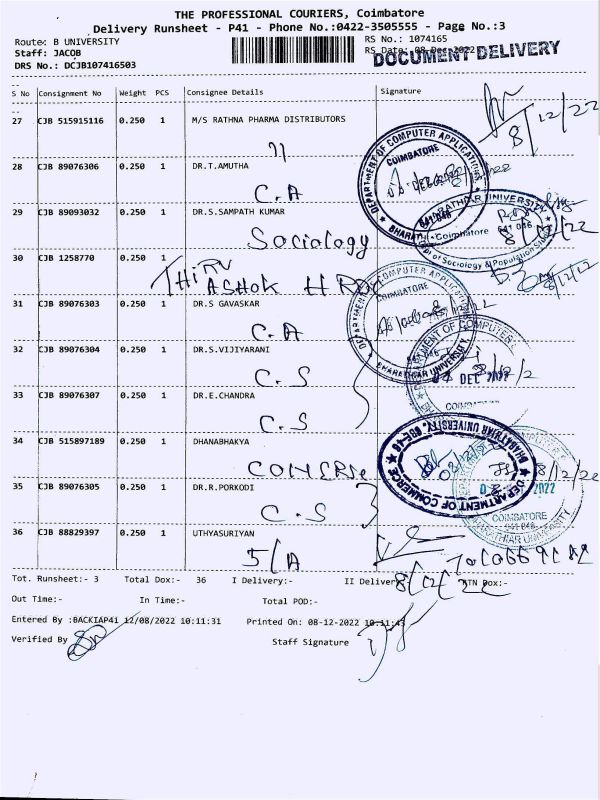 THE PROFESSIONAL COURIERS, Coimbatore
Delivery Runsheet - P41 - Phone No.:0422-3505555 - Page No.:3
Route: B UNIVERSITY RS No.: 1074165
Staff: JACOB RS Date: 08 Dec 2022
DRS No.: DCJB107416503 DOCUMENT DELIVERY
S No Consignment No Weight PCS Consignee Details Signature
27 CJB 515915116 0.250 1 M/S RATHNA PHARMA DISTRIBUTORS
8/12/22
28 CJB 89076306 0.250 1 DR.T.AMUTHA
C.A
DEPARTMENT OF COMPUTER APPLICATIONS
COIMBATORE
641 046
29 CJB 89093032 0.250 1 DR.S.SAMPATH KUMAR
Sociology
BHARATHIAR UNIVERSITY
Coimbatore 641 046
of Sociology & Population
30 CJB 1258770 0.250 1 THIRU
ASHOK
31 CJB 89076303 0.250 1 DR.S GAVASKAR
C.A
COMPUTER
COIMBATORE
BHARATHIAR UNIVERSITY
32 CJB 89076304 0.250 1 DR.S.VIJIYARANI
C.S
OF COMPUTER
DEC
33 CJB 89076307 0.250 1 DR.E.CHANDRA
C.S
34 CJB 515897189 0.250 1 DHANABHAKYA
BHARATHIAR UNIVERSITY, CBE-46
DEPARTMENT OF COMMERCE
8/12/22
35 CJB 89076305 0.250 1 DR.R.PORKODI
C.S
2022
COIMBATORE
641 046
BHARATHIAR UNIVERSITY
36 CJB 88829397 0.250 1 UTHYASURIYAN
Tot. Runsheet:- 3 Total Dox:- 36 I Delivery:- II Delivery RTN Dox:-
Out Time:- In Time:- Total POD:-
Entered By :BACKIAP41 12/08/2022 10:11:31 Printed On: 08-12-2022 10:11:43
Verified By Staff Signature